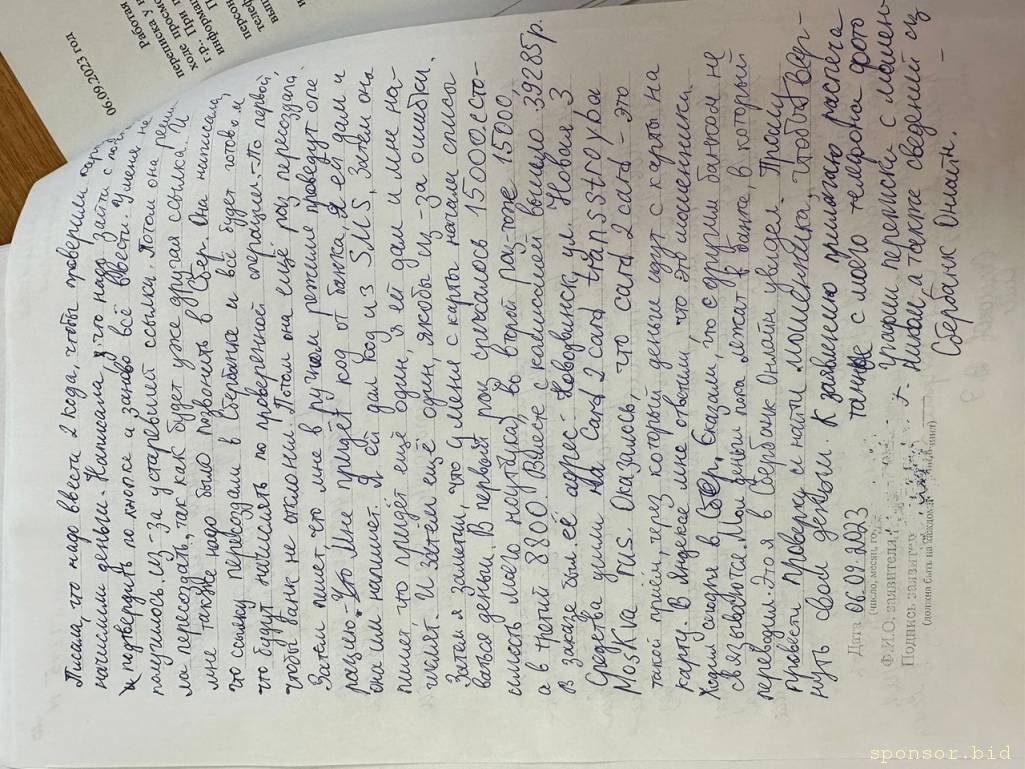 06.09.2023 год
Работая
переписка у н
ходе просмо
г-р. При
информа
персон
телеф
вып
и
Писала, что надо ввести 2 кода, чтобы проверили
начислили деньги. Написала, что надо зайти с
подтвердить по кнопке и заново всё ввести. У меня не
получилось из-за устаревшей ссылки. Потом она
ла пересоздать, так как будет уже другая ссылка. И
также надо было позвонить в Сбер. Она написала,
что ссылку пересоздали в Сбербанка и всё будет готово, и
что будут начислять по проверенной операции. По первой,
чтобы банк не отклонил. Потом она ещё раз пересоздала.
Затем пишет, что мне в ручном режиме проведут опе
рацию. Мне придёт код от банка, я ей дам и
она им напишет. Я ей дал код из SMS, затем она
пишет, что придёт ещё один, я ей дал и мне на-
числят. И затем ещё один, якобы из-за ошибки.
Затем я заметил, что у меня с карты начали списы
ваться деньги. В первый раз списалось 15000.
списать моего ноутбука), во второй раз-тоже 15000,
а в третий 8800. Вместе с комиссией вышло 39285р.
В заказе был её адрес - Новодвинск, ул. Новая 3
Средства ушли на Card 2 card transstroyba
Mosкva rus. Оказалось, что card 2 card - это
такой приём, через который деньги идут с карты на
карту. В Яндексе мне ответили, что это мошенника.
Ходил сегодня в Сбер. Сказали, что с другим банком не
связываются. Мои деньги пока лежат в банке, в который
переводил. Это я в Сбербанк Онлайн увидел. Прошу
провести проверку и найти мошенника, чтобы вер-
нуть свои деньги. К заявлению прилагаю распеча
танные с моего телефона фото
истории переписки с мошен-
ником, а также сведений из
Сбербанк Онлайн.
Дата 06.09.2023
(число, месяц, год)
Ф.И.О. заявителя
Подпись заявителя
(должна быть на каждом листе)
sponsor.bid